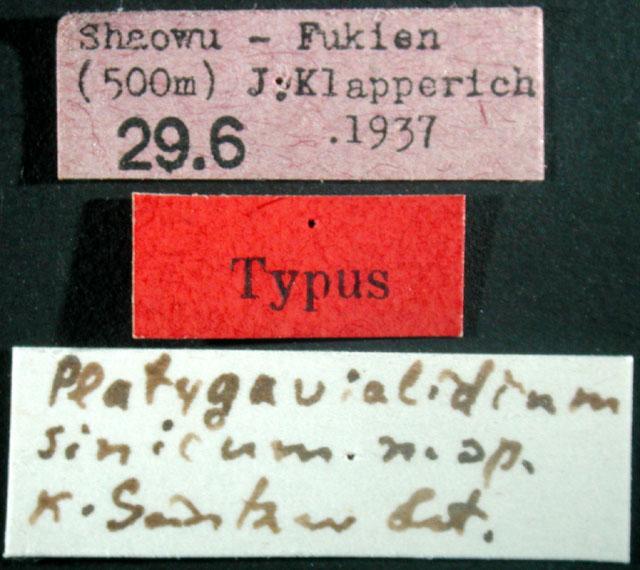 Shaowu - Fukien
(500m) J.Klapperich
29.6 .1937
Typus
Platygavialidium
sinicum. n. sp.
K.